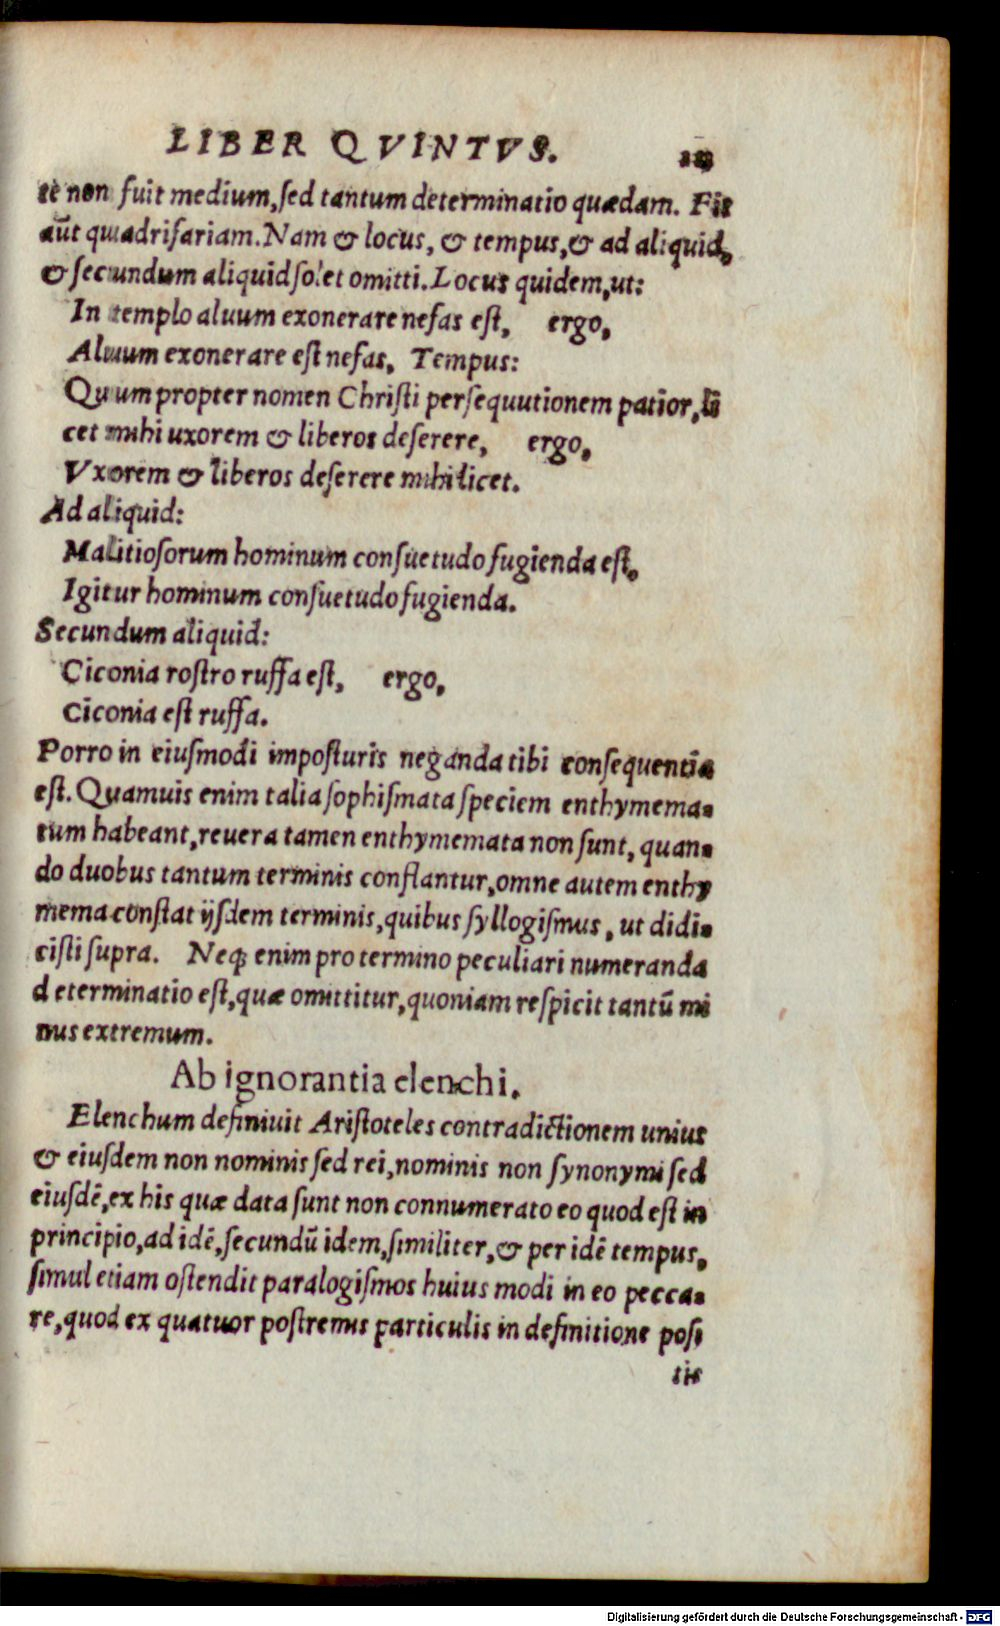 LIBER QVINTVS.
te non fuit medium, sed tantum determinatio quædam. Fit
aũt quadrifariam. Nam & locus, & tempus, & ad aliquid,
& secundum aliquid solet omitti. Locus quidem, ut:
In templo aluum exonerare nefas est, ergo,
Aluum exonerare est nefas, Tempus:
Quum propter nomen Christi persequutionem patior, li
cet mihi uxorem & liberos deserere, ergo,
Vxorem & liberos deserere mihi licet.
Ad aliquid:
Malitiosorum hominum consuetudo fugienda est,
Igitur hominum consuetudo fugienda.
Secundum aliquid:
Ciconia rostro ruffa est, ergo,
Ciconia est ruffa.
Porro in eiusmodi imposturis neganda tibi consequentia
est. Quamuis enim talia sophismata speciem enthymema-
tum habeant, reuera tamen enthymemata non sunt, quan-
do duobus tantum terminis constantur, omne autem enthy
mema constat ijsdem terminis, quibus syllogismus, ut didi-
cisti supra. Neq; enim pro termino peculiari numeranda
determinatio est, quæ omittitur, quoniam respicit tantũ mi
nus extremum.
Ab ignorantia elenchi.
Elenchum definiuit Aristoteles contradictionem unius
& eiusdem non nominis sed rei, nominis non synonymi sed
eiusdẽ, ex his quæ data sunt non connumerato eo quod est in
principio, ad idẽ, secundũ idem, similiter, & per idẽ tempus,
simul etiam ostendit paralogismos huius modi in eo pecca-
re, quod ex quatuor postremis particulis in definitione posi
tis
Digitalisierung gefördert durch die Deutsche Forschungsgemeinschaft - DFG